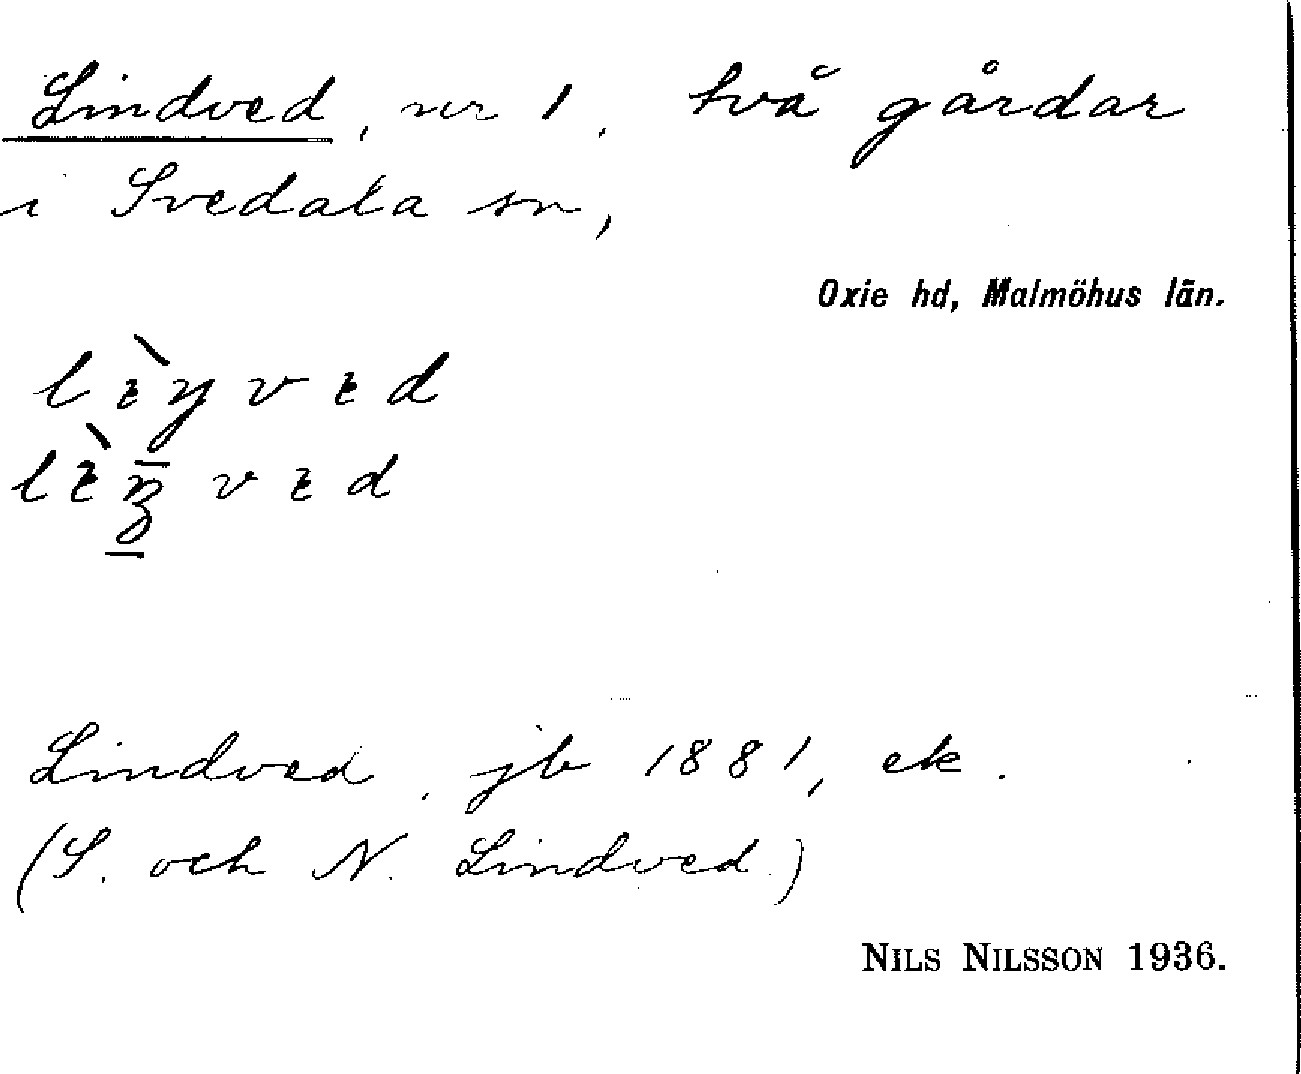 Lindved, nr 1. två gårdar
i Svedala sn,
Oxie hd, Malmöhus län.
Lindved, jb 1881, ek.
(S. och N. Lindved)
NILS NILSSON 1936.